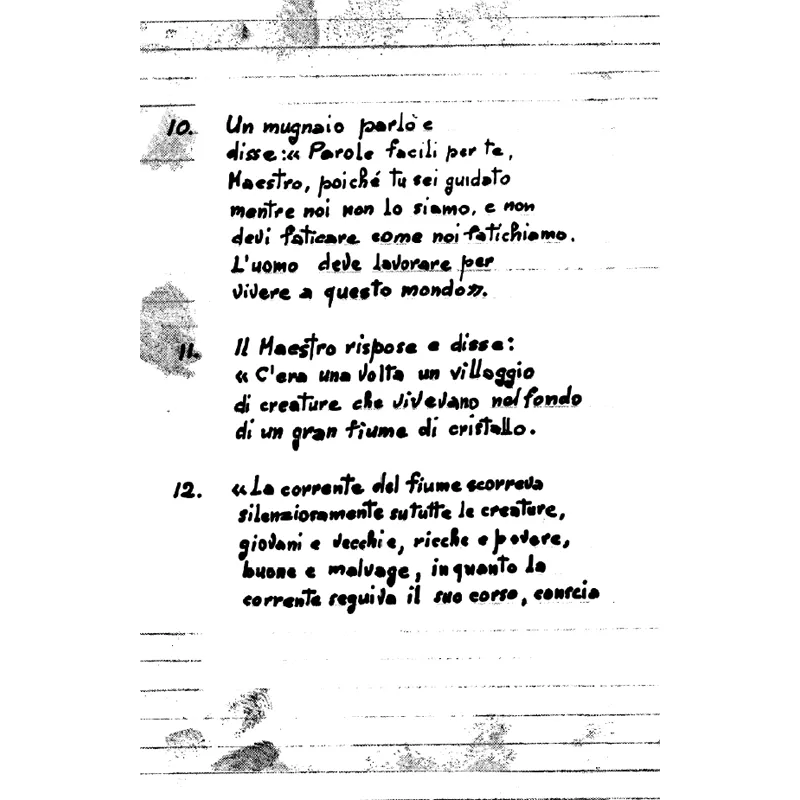 10. Un mugnaio parlò e
disse: « Parole facili per te,
Maestro, poiché tu sei guidato
mentre noi non lo siamo, e non
devi faticare come noi fatichiamo.
L'uomo deve lavorare per
vivere a questo mondo».
11. Il Maestro rispose e disse:
« C'era una volta un villaggio
di creature che vivevano nel fondo
di un gran fiume di cristallo.
12. «La corrente del fiume scorreva
silenziosamente su tutte le creature,
giovani e vecchie, ricche e povere,
buone e malvage, in quanto la
corrente seguiva il suo corso, conscia